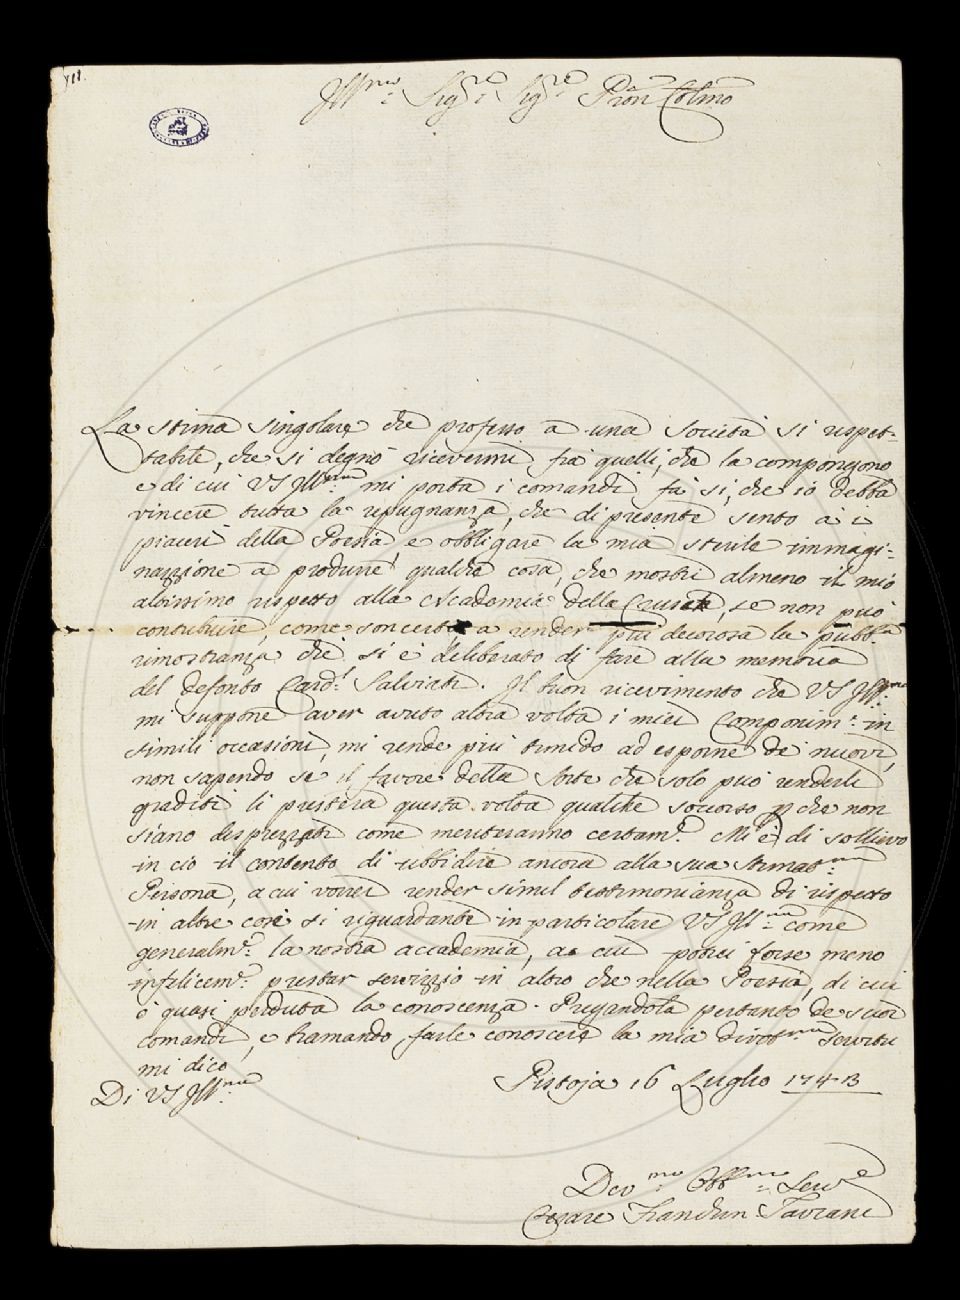 Ill:mo Sig:re Sig:re Pron Colmo
La stima singolare che professo a una società si rispet-
tabile, che si degnò ricevermi fra quelli, che la compongono
e di cui VS Ill:ma mi porta i comandi fa si, che io debba
vincere tutta la repugnanza, che di presente sento a i
piaceri della Poesia, e obbligare la mia sterile immagi-
nazzione a produrre qualche cosa, che mostri almeno il mio
altissimo rispetto alla Accademia della Crusca, se non può
contribuire, come son certo, a render più decorosa la pubb:ca
rimostranza che si è deliberato di fare alla memoria
del defonto Card:l Salviati. Il buon ricevimento che VS Ill:ma
mi suppone aver avuto altra volta i miei Componim:ti in
simili occasioni, mi rende più timido ad esporne de nuovi,
non sapendo se il favore della sorte che solo può renderli
graditi li presterà questa volta qualche soccorso p che non
siano disprezzati come meriteranno certam:e Mi è di sollievo
in ciò il contento di ubbidire ancora alla sua stimat:ma
Persona, a cui vorrei render simil testimonianza di rispetto
in altre cose si riguardante in particolare VS Ill:ma come
generalm:e la nostra accademia, a cui potrei forse meno
infelicem:e prestar servizzio in altro che nella Poesia, di cui
ò quasi perduta la conoscenza. Pregandola pertanto de suoi
comandi, e bramando farle conoscere la mia divot:ma servitù
mi dico
Di VS Ill:ma
Pistoja 16 Luglio 1743
Dev:mo Obb:mo Serv:e
Cesare Franchini Taviani